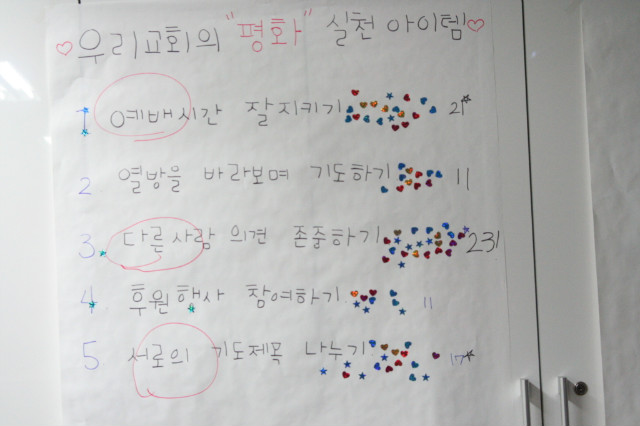 ♡우리교회의 "평화" 실천 아이템♡
1 예배시간 잘지키기 21
2 열방을 바라보며 기도하기 11
3. 다른사람 의견 존중하기 231
4 후원행사 참여하기 11
5 서로의 기도제목 나누기 17